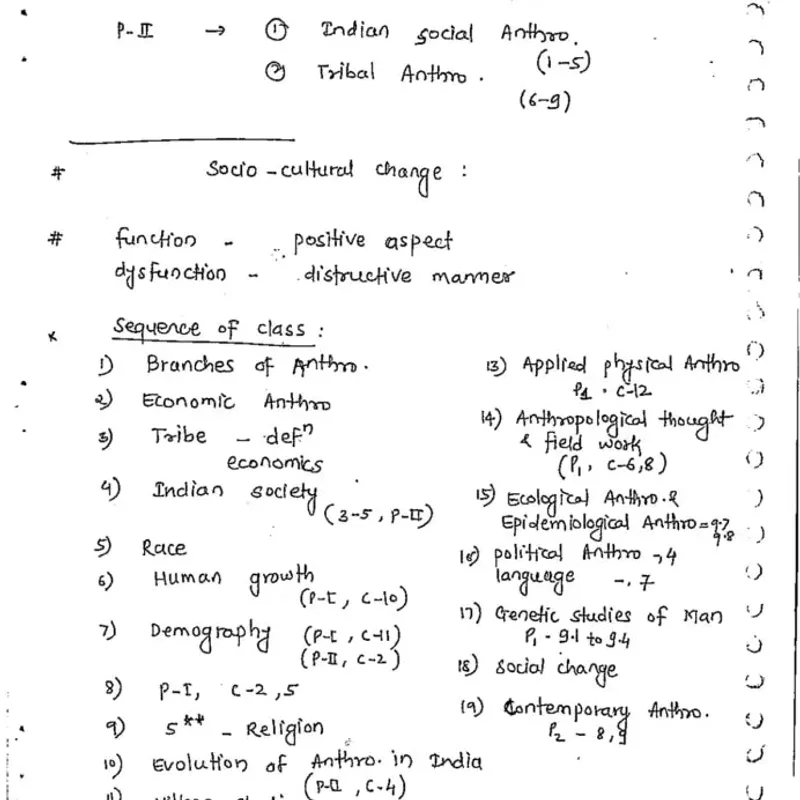 P-II → ① Indian social Anthro.
(1-5)
② Tribal Anthro.
(6-9)
# Socio-cultural change :
# function - positive aspect
dysfunction - distructive manner
* Sequence of class :
1) Branches of Anthro.
2) Economic Anthro
3) Tribe - defⁿ
economics
4) Indian society
(3-5, P-II)
5) Race
6) Human growth
(P-I, C-10)
7) Demography (P-I, C-11)
(P-II, C-2)
8) P-I, C-2,5
9) 5** - Religion
10) Evolution of Anthro. in India
(P-II, C-4)
11)
13) Applied physical Anthro
P1 . C-12
14) Anthropological thought
& field work
(P1, C-6,8)
15) Ecological Anthro. &
Epidemiological Anthro = 9.7
9.8
16) political Anthro → 4
language -. 7
17) Genetic studies of Man
P1 - 9.1 to 9.4
18) social change
19) Contemporary Anthro.
P2 - 8,9